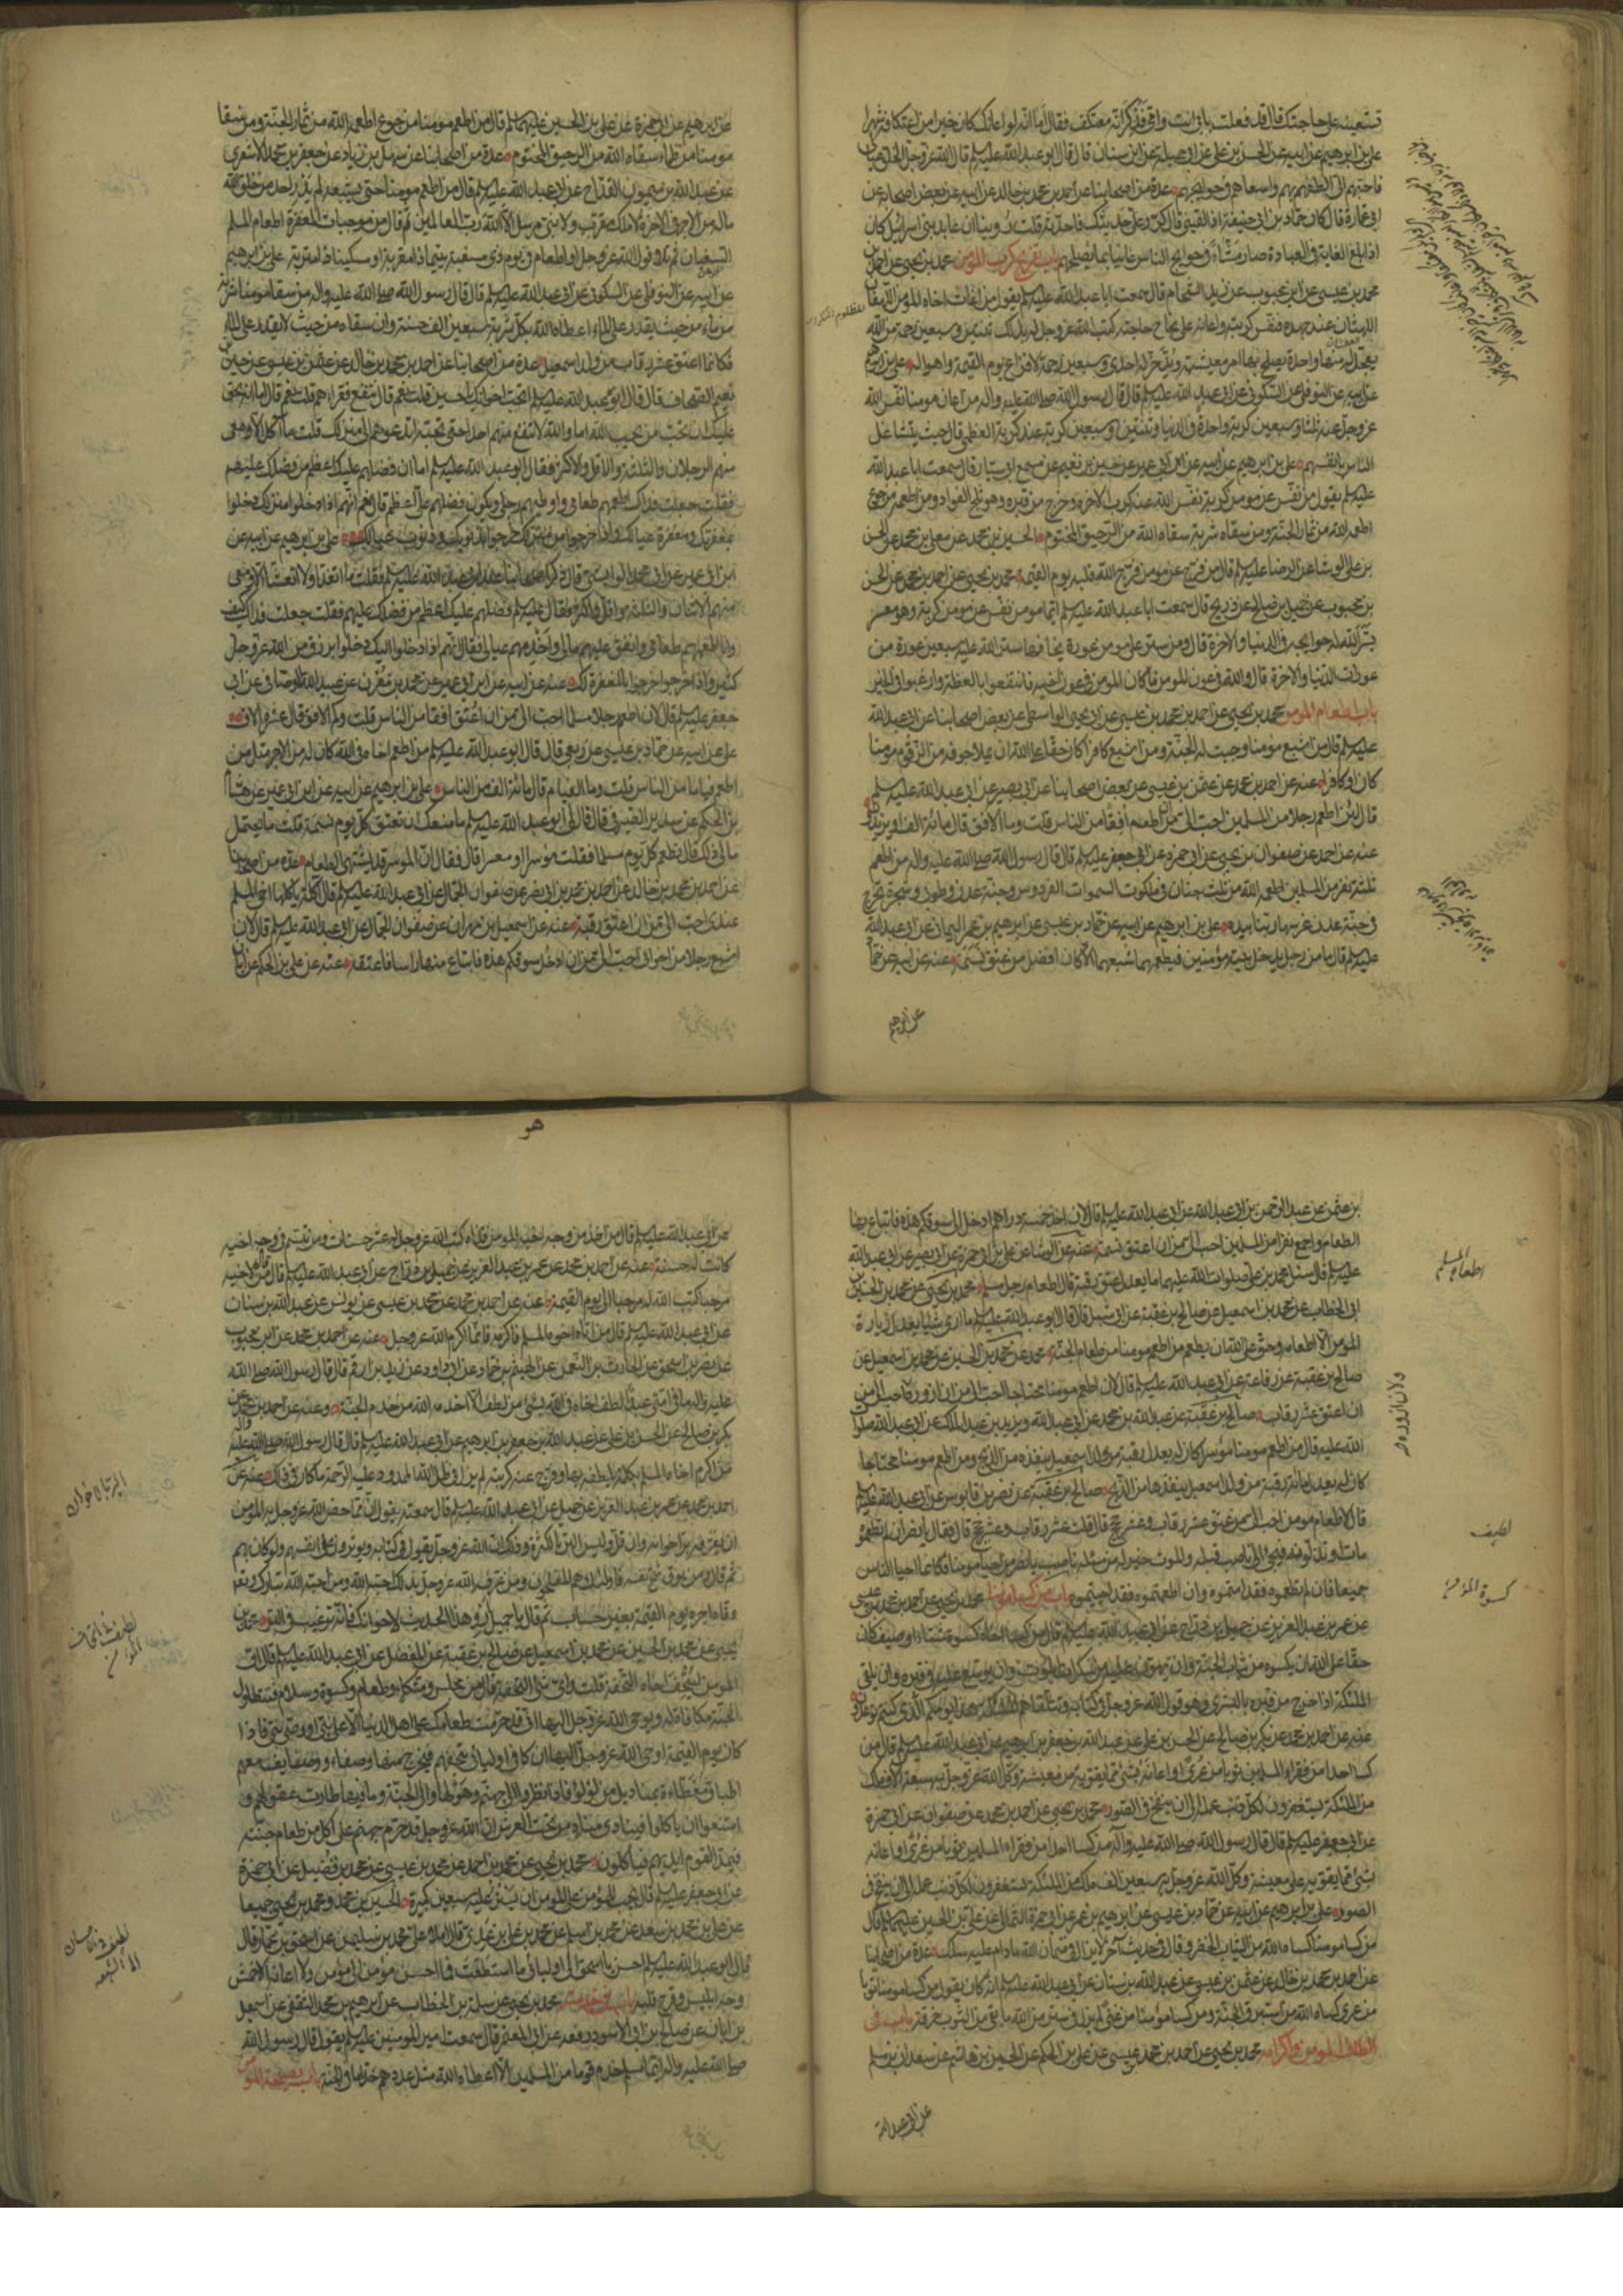 تستعينه على حاجتك فقال قد فعلت بابي انت وامي فذكر انه معتكف فقال اما انه لو اعانك كان خيرا من اعتكافه شهرا
علي بن ابرهيم عن ابيه عن الحسن بن علي عن ابي جميلة عن ابن سنان قال قال ابو عبد الله عليه السلم قال الله عز وجل الخلق عيالي
فاحبهم الي الطفهم بهم واسعاهم في حوايجهم عدة من اصحابنا عن احمد بن محمد بن خالد عن ابيه عن بعض اصحابه عن
ابي عمارة قال كان حماد بن ابي حنيفة اذا لقيني قال كرر علي حديثك فاحدثه قلت روينا ان عابد بني اسرائيل كان
اذا بلغ الغاية في العبادة صار مشاء في حوايج الناس عانيا بما يصلحهم باب تفريج كرب المؤمن محمد بن يحيى عن احمد بن
محمد بن عيسى عن ابن محبوب عن زيد الشحام قال سمعت ابا عبد الله عليه السلم يقول من اغاث اخاه المؤمن اللهفان
اللهثان عند جهده فنفس كربته واعانه على نجاح حاجته كتب الله عز وجل له بذلك ثنتين وسبعين رحمة من الله
يعجل له منها واحدة يصلح بها امر معيشته ويدخر له احدى وسبعين رحمة لافزاع يوم القيمة واهواله علي بن ابرهيم
عن ابيه عن النوفلي عن السكوني عن ابي عبد الله عليه السلم قال قال رسول الله صلى الله عليه واله من اعان مومنا نفس الله
عز وجل عنه ثلثا وسبعين كربة واحدة في الدنيا وثنتين وسبعين كربة عند كربته العظمى قال حيث يتشاغل
الناس بانفسهم علي بن ابرهيم عن ابيه عن ابن ابي عمير عن حسين بن نعيم عن مسمع ابي سيار قال سمعت ابا عبد الله
عليه السلم يقول من نفس عن مومن كربة نفس الله عنه كرب الاخرة وخرج من قبره وهو ثلج الفواد ومن اطعمه من جوع
اطعمه الله من ثمار الجنة ومن سقاه شربة سقاه الله من الرحيق المختوم الحسين بن محمد عن معلى بن محمد عن الحسن
بن علي الوشا عن الرضا عليه السلم قال من فرج عن مومن فرج الله قلبه يوم القيمة محمد بن يحيى عن احمد بن محمد عن الحسن
بن محبوب عن جميل بن صالح عن ذريح قال سمعت ابا عبد الله عليه السلم ايما مومن نفس عن مومن كربة وهو معسر
يسر الله له حوايجه في الدنيا والاخرة قال ومن ستر على مومن عورة يخافها ستر الله عليه سبعين عورة من
عورات الدنيا والاخرة قال والله في عون المومن ما كان المومن في عون اخيه فانتفعوا بالعظة وارغبوا في الخير
باب اطعام المومن محمد بن يحيى عن احمد بن محمد بن عيسى عن ابي يحيى الواسطي عن بعض اصحابنا عن ابي عبد الله
عليه السلم قال من اشبع مومنا وجبت له الجنة ومن اشبع كافرا كان حقا على الله ان يملا جوفه من الزقوم مومنا
كان او كافرا عنه عن احمد بن محمد عن عثمن بن عيسى عن بعض اصحابنا عن ابي بصير عن ابي عبد الله عليه السلم
قال لان اطعم رجلا من المسلمين احب الي من ان اطعم افقا من الناس قلت وما الافق قال مائة الف او يزيدون
عنه عن احمد عن صفوان بن يحيى عن ابي حمزه عن ابي جعفر عليه السلم قال قال رسول الله صلى الله عليه واله من اطعم
ثلثة نفر من المسلمين اطعمه الله من ثلث جنان في ملكوت السموات الفردوس وجنة عدن وطوبى وشجرة تخرج
في جنة عدن غرسها ربنا بيده علي بن ابرهيم عن ابيه عن حماد بن عيسى عن ابرهيم بن عمر اليماني عن ابي عبد الله
عليه السلم قال ما من رجل يدخل بيته مؤمنين فيطعمهما شبعهما الا كان افضل من عتق نسمة عنه عن ابيه عن حماد
عن ابرهيم
عن ابرهيم عن ابي حمزة عن علي بن الحسين عليهما السلم قال من اطعم مومنا من جوع اطعمه الله من ثمار الجنة ومن سقا
مومنا من ظماء سقاه الله من الرحيق المختوم عدة من اصحابنا عن سهل بن زياد عن جعفر بن محمد الاشعري
عن عبد الله بن ميمون القداح عن ابي عبد الله عليه السلم قال من اطعم مومنا حتى يشبعه لم يدر احد من خلق الله
ماله من الاجر في الاخرة لا ملك مقرب ولا نبي مرسل الا الله رب العالمين ثم قال من موجبات المغفرة اطعام المسلم
السغبان ثم تلا قول الله عز وجل او اطعام في يوم ذي مسغبة يتيما ذا مقربة او مسكينا ذا متربة علي بن ابرهيم
عن ابيه عن النوفلي عن السكوني عن ابي عبد الله عليه السلم قال قال رسول الله صلى الله عليه واله من سقا مومنا شربة
من ماء من حيث يقدر على الماء اعطاه الله بكل شربة سبعين الف حسنة وان سقاه من حيث لا يقدر على الماء
فكانما اعتق عشر رقاب من ولد اسمعيل عدة من اصحابنا عن احمد بن محمد بن خالد عن عثمن بن عيسى عن حسين بن
نعيم الصحاف قال قال ابو عبد الله عليه السلم اتحب اخوانك يا حسين قلت نعم قال تنفع فقراءهم قلت نعم قال اما انه يحق
عليك ان تحب من يحب الله اما والله لا تنفع منهم احدا حتى تحبه اتدعوهم الى منزلك قلت ما اكل الا ومعي
منهم الرجلان والثلثة والاقل والاكثر فقال ابو عبد الله عليه السلم اما ان فضلهم عليك اعظم من فضلك عليهم
فقلت جعلت فداك اطعمهم طعامي واوطيهم رحلي ويكون فضلهم علي اعظم قال نعم انهم اذا دخلوا منزلك دخلوا
بمغفرتك ومغفرة عيالك واذا خرجوا من منزلك خرجوا بذنوبك وذنوب عيالك علي بن ابرهيم عن ابيه عن
ابن ابي عمير عن ابي محمد الوابشي قال ذكر اصحابنا عند ابي عبد الله عليه السلم فقلت ما اتغدا ولا اتعشا الا ومعي
منهم الاثنان والثلثة واقل واكثر فقال عليه السلم فضلهم عليك اعظم من فضلك عليهم فقلت جعلت فداك كيف
وانا اطعمهم طعامي وانفق عليهم مالي واخدمهم عيالي فقال انهم اذا دخلوا اليك دخلوا برزق من الله عز وجل
كثير واذا خرجوا خرجوا بالمغفرة لك عنه عن ابيه عن ابن ابي عمير عن محمد بن مقرن عن عبيد الله الوصافي عن ابي
جعفر عليه السلم قال لان اطعم رجلا مسلما احب الي من ان اعتق افقا من الناس قلت وكم الافق قال عشرة الاف
علي عن ابيه عن حماد بن عيسى عن ربعي قال قال ابو عبد الله عليه السلم من اطعم اخاه في الله كان له من الاجر مثل من
اطعم فياما من الناس قلت وما الفيام قال مائة الف من الناس علي بن ابرهيم عن ابيه عن ابن ابي عمير عن هشام
بن الحكم عن سدير الصيرفي قال قال لي ابو عبد الله عليه السلم ما منعك ان تعتق كل يوم نسمة قلت ما يحتمل
مالي ذلك قال تطعم كل يوم مسلما فقلت موسرا او معسرا قال فقال ان الموسر قد يشتهي الطعام عدة من اصحابنا
عن احمد بن محمد بن خالد عن احمد بن محمد بن ابي نصر عن صفوان الجمال عن ابي عبد الله عليه السلم قال اكلة ياكلها اخي المسلم
عندي احب الي من ان اعتق رقبة عنه عن اسمعيل بن مهران عن صفوان الجمال عن ابي عبد الله عليه السلم قال لان
اشبع رجلا من اخواني احب الي من ان ادخل سوقكم هذه فابتاع منها راسا فاعتقه عنه عن علي بن الحكم عن ابان
بن عثمن عن عبد الرحمن بن ابي عبد الله عن ابي عبد الله عليه السلم قال لان اخذ خمسة دراهم ادخل الى سوقكم هذه فابتاع بها
الطعام واجمع نفرا من المسلمين احب الي من ان اعتق نسمة عنه عن الوشا عن علي بن ابي حمزة عن ابي بصير عن ابي عبد الله
عليه السلم قال سئل محمد بن علي صلوات الله عليهما ما يعدل عتق رقبة قال اطعام رجل مسلم محمد بن يحيى عن محمد بن الحسين
ابي الخطاب عن محمد بن اسمعيل عن صالح بن عقبة عن ابي شبل قال قال ابو عبد الله عليه السلم ما ارى شيئا يعدل زيارة
المومن الا اطعامه وحق على الله ان يطعم من اطعم مومنا من طعام الجنة محمد عن محمد بن الحسين عن محمد بن اسمعيل عن
صالح بن عقبة عن رفاعة عن ابي عبد الله عليه السلم قال لان اطعم مومنا محتاجا احب الي من ان ازوره احب الي من
ان اعتق عشر رقاب صالح بن عقبة عن عبد الله بن محمد عن ابي عبد الله ويزيد بن عبد الملك عن ابي عبد الله صلوات
الله عليه قال من اطعم مومنا موسرا كان له يعدل رقبة من ولد اسمعيل ينقذه من الذبح ومن اطعم مومنا محتاجا
كان له يعدل مائة رقبة من ولد اسمعيل ينقذها من الذبح صالح بن عقبة عن نصر بن قابوس عن ابي عبد الله عليه السلم
قال لاطعام مومن احب الي من عتق عشر رقاب وعشر حجج قال قلت عشر رقاب وعشر حجج قال فقال يا نصر ان لم تطعموه
مات او تذلونه فيجئ الى ناصب فيسئله والموت خير له من مسئلة ناصب يا نصر من احيا مومنا فكانما احيا الناس
جميعا فان لم تطعموه فقد امتموه وان اطعمتموه فقد احييتموه باب من كسا مؤمنا محمد بن يحيى عن احمد بن محمد بن عيسى
عن عمر بن عبد العزيز عن جميل بن دراج عن ابي عبد الله عليه السلم قال من كسا اخاه كسوة شتاء او صيف كان
حقا على الله ان يكسوه من ثياب الجنة وان يهون عليه من سكرات الموت وان يوسع عليه في قبره وان يلقى
الملئكة اذا خرج من قبره بالبشرى وهو قول الله عز وجل في كتابه وتتلقاهم الملئكة هذا يومكم الذي كنتم توعدون
عنه عن احمد بن محمد عن بكر بن صالح عن الحسن بن علي عن عبد الله بن جعفر بن ابرهيم عن ابي عبد الله عليه السلم قال من
كسا احدا من فقراء المسلمين ثوبا من عرى او اعانه بشئ مما يقويه من معيشته وكل الله عز وجل به سبعة الاف ملك
من الملئكة يستغفرون لكل ذنب عمله الى ان ينفخ في الصور محمد بن يحيى عن احمد بن محمد عن صفوان عن ابي حمزة
عن ابي جعفر عليه السلم قال قال رسول الله صلى الله عليه واله من كسا احدا من فقراء المسلمين ثوبا من عرى او اعانه
بشئ مما يقويه على معيشته وكل الله عز وجل به سبعين الف ملك من الملئكة يستغفرون لكل ذنب عمله الى ان ينفخ في
الصور علي بن ابرهيم عن ابيه عن حماد بن عيسى عن ابرهيم بن عمر عن ابي حمزة الثمالي عن علي بن الحسين عليهما السلم قال
من كسا مومنا كساه الله من الثياب الخضر وقال في حديث آخر لا يزال في ضمان الله ما دام عليه سلك عدة من اصحابنا
عن احمد بن محمد بن خالد عن عثمن بن عيسى عن عبد الله بن سنان عن ابي عبد الله عليه السلم انه كان يقول من كسا مومنا ثوبا
من عرى كساه الله من استبرق الجنة ومن كسا مؤمنا من غنى لم يزل في ستر من الله ما بقي من الثوب خرقة باب في
الطاف المومن واكرامه محمد بن يحيى عن احمد بن محمد بن عيسى عن علي بن الحكم عن الحسين بن هاشم عن سعدان بن مسلم
عن ابي عبد الله
اطعام المسلم
لطيف
كسوة المؤمن
هو
عن ابي عبد الله عليه السلم قال من اخذ من وجه اخيه المومن قذاة كتب الله عز وجل له عشر حسنات ومن تبسم في وجه اخيه
كانت له حسنة عنه عن احمد بن محمد عن عمر بن عبد العزيز عن جميل بن دراج عن ابي عبد الله عليه السلم قال من قال لاخيه
مرحبا كتب الله له مرحبا الى يوم القيمة عنه عن احمد بن محمد عن محمد بن عيسى عن يونس عن عبد الله بن سنان
عن ابي عبد الله عليه السلم قال من اتاه اخوه المسلم فاكرمه فانما اكرم الله عز وجل عنه عن احمد بن محمد عن ابن محبوب
عن نصر بن اسحق عن الحارث بن النعمن عن الهيثم بن حماد عن ابي داود عن زيد بن ارقم قال قال رسول الله صلى الله
عليه واله ما في امتي عبد الطف اخاه في الله بشئ من لطف الا اخدمه الله من خدم الجنة وعنه عن احمد بن محمد عن
بكر بن صالح عن الحسن بن علي عن عبد الله بن جعفر بن ابرهيم عن ابي عبد الله عليه السلم قال قال رسول الله صلى الله عليه واله
من اكرم اخاه المسلم بكلمة يلطفه بها وفرج عنه كربته لم يزل في ظل الله الممدود عليه الرحمة ما كان في ذلك عنه عن
احمد بن محمد عن عمر بن عبد العزيز عن جميل عن ابي عبد الله عليه السلم قال سمعته يقول ان مما خص الله عز وجل به المومن
ان يعرفه بر اخوانه وان قل وليس البر بالكثرة وذلك ان الله عز وجل يقول في كتابه ويؤثرون على انفسهم ولو كان بهم
ثم قال ومن يوق شح نفسه فاولئك هم المفلحون ومن عرفه الله عز وجل بذلك احبه الله ومن احبه الله تبارك وتعا
وفاه اجره يوم القيمة بغير حساب ثم قال يا جميل ارو هذا الحديث لاخوانك فانه ترغيب في البر محمد بن
يحيى عن محمد بن الحسين عن محمد بن اسمعيل عن صالح بن عقبة عن المفضل عن ابي عبد الله عليه السلم قال ان
المومن ليتحف اخاه التحفة قلت واي شئ التحفة قال من مجلس ومتكاء وطعام وكسوة وسلام فتطاول
الجنة مكافاة له ويوحي الله عز وجل اليها اني قد حرمت طعامك على اهل الدنيا الا على نبي او وصي نبي فاذا
كان يوم القيمة اوحى الله عز وجل اليها ان كافي اوليائي بتحفهم فيخرج منها وصفاء ووصايف معهم
اطباق مغطاءة بمناديل من لؤلؤ فاذا نظروا الى جهنم وهولها والى الجنة وما فيها طارت عقولهم و
امتنعوا ان ياكلوا فينادي مناد من تحت العرش ان الله عز وجل قد حرم جهنم على من اكل من طعام جنته
فيمد القوم ايديهم فياكلون محمد بن يحيى عن محمد بن احمد عن محمد بن عيسى عن محمد بن فضيل عن ابي حمزة
عن ابي جعفر عليه السلم قال يجب للمؤمن على المومن ان يستر عليه سبعين كبيرة الحسين بن محمد ومحمد بن يحيى جميعا
عن علي بن محمد بن سعد عن محمد بن اسلم عن محمد بن علي بن عدي قال املا علي محمد بن سليمن عن اسحق بن عمار قال
قال ابو عبد الله عليه السلم احسن يا اسحق الى اوليائي ما استطعت فما احسن مؤمن الى مؤمن ولا اعانه الا خمش
وجه ابليس وقرح قلبه باب في خدمته محمد بن يحيى عن سلمة بن الخطاب عن ابرهيم بن محمد الثقفي عن اسمعيل
بن ابان عن صالح بن ابي الاسود رفعه عن ابي المعتمر قال سمعت امير المومنين عليه السلم يقول قال رسول الله
صلى الله عليه واله ايما مسلم خدم قوما من المسلمين الا اعطاه الله مثل عددهم خداما في الجنة باب نصيحة المومن
البر بالاخوان